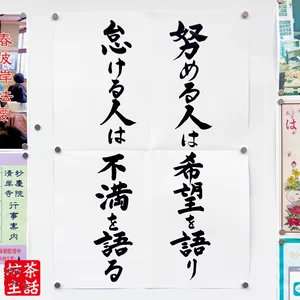 努める人は希望を語り
怠ける人は不満を語る
春彼岸法要
妙慶院
清岸寺
行事案内
坊茶
主話
は